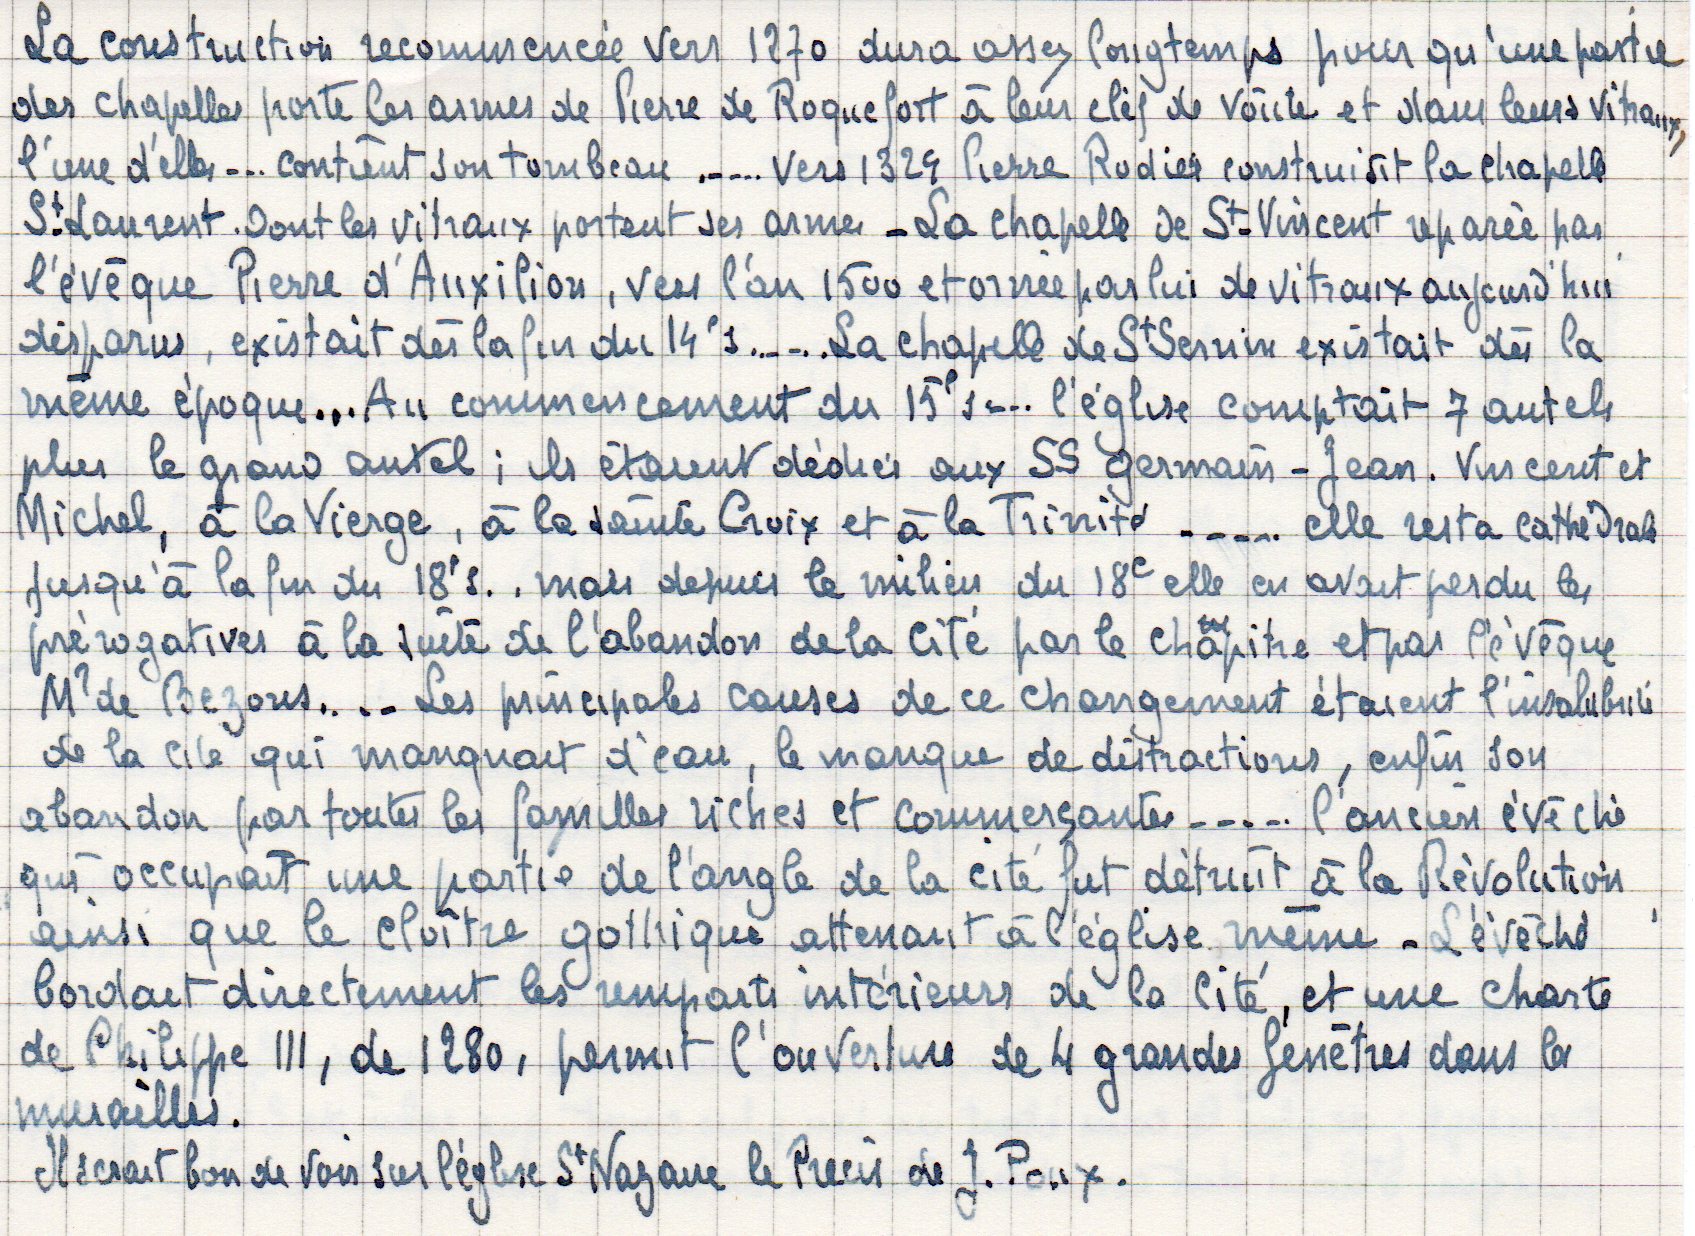 La construction recommencée vers 1270 dura assez longtemps pour qu'une partie
des chapelles porte les armes de Pierre de Roquefort à leur clef de voûte et dans leurs vitraux,
l'une d'elles --- contient son tombeau ..... vers 1324 Pierre Rodier construisit la chapelle
St. Laurent. Dont les vitraux portent ses armes - La chapelle de St-Vincent reparée par
l'évêque Pierre d'Auxilion, vers l'an 1500 et ornée par lui de vitraux aujourd'hui
disparus, existait dès la fin du 14e s..... La chapelle de St Sernin existait dès la
même époque... Au commencement du 15e s.... l'église comptait 7 autels
plus le grand autel ; ils étaient dédiés aux SS Germain - Jean. Vincent et
Michel, à la Vierge, à la sainte Croix et à la Trinité ----- elle resta cathédrale
jusqu'à la fin du 18e s.. mais depuis le milieu du 18e elle en avait perdu les
prérogatives à la suite de l'abandon de la Cité par le chapitre et par l'évêque
Mr de Bezons.... Les principales causes de ce changement étaient l'insalubrité
de la cité qui manquait d'eau, le manque de distractions, enfin son
abandon par toutes les familles riches et commerçantes ----- l'ancien évêché
qui occupait une partie de l'angle de la cité fut détruit à la Révolution
ainsi que le cloître gothique attenant à l'église même - L'évêché
bordait directement les remparts intérieurs de la Cité, et une charte
de Philippe III, de 1280, permit l'ouverture de 4 grandes fenêtres dans les
murailles.
Il serait bon de voir sur l'église St Nazaire le Précis de J. Poux.